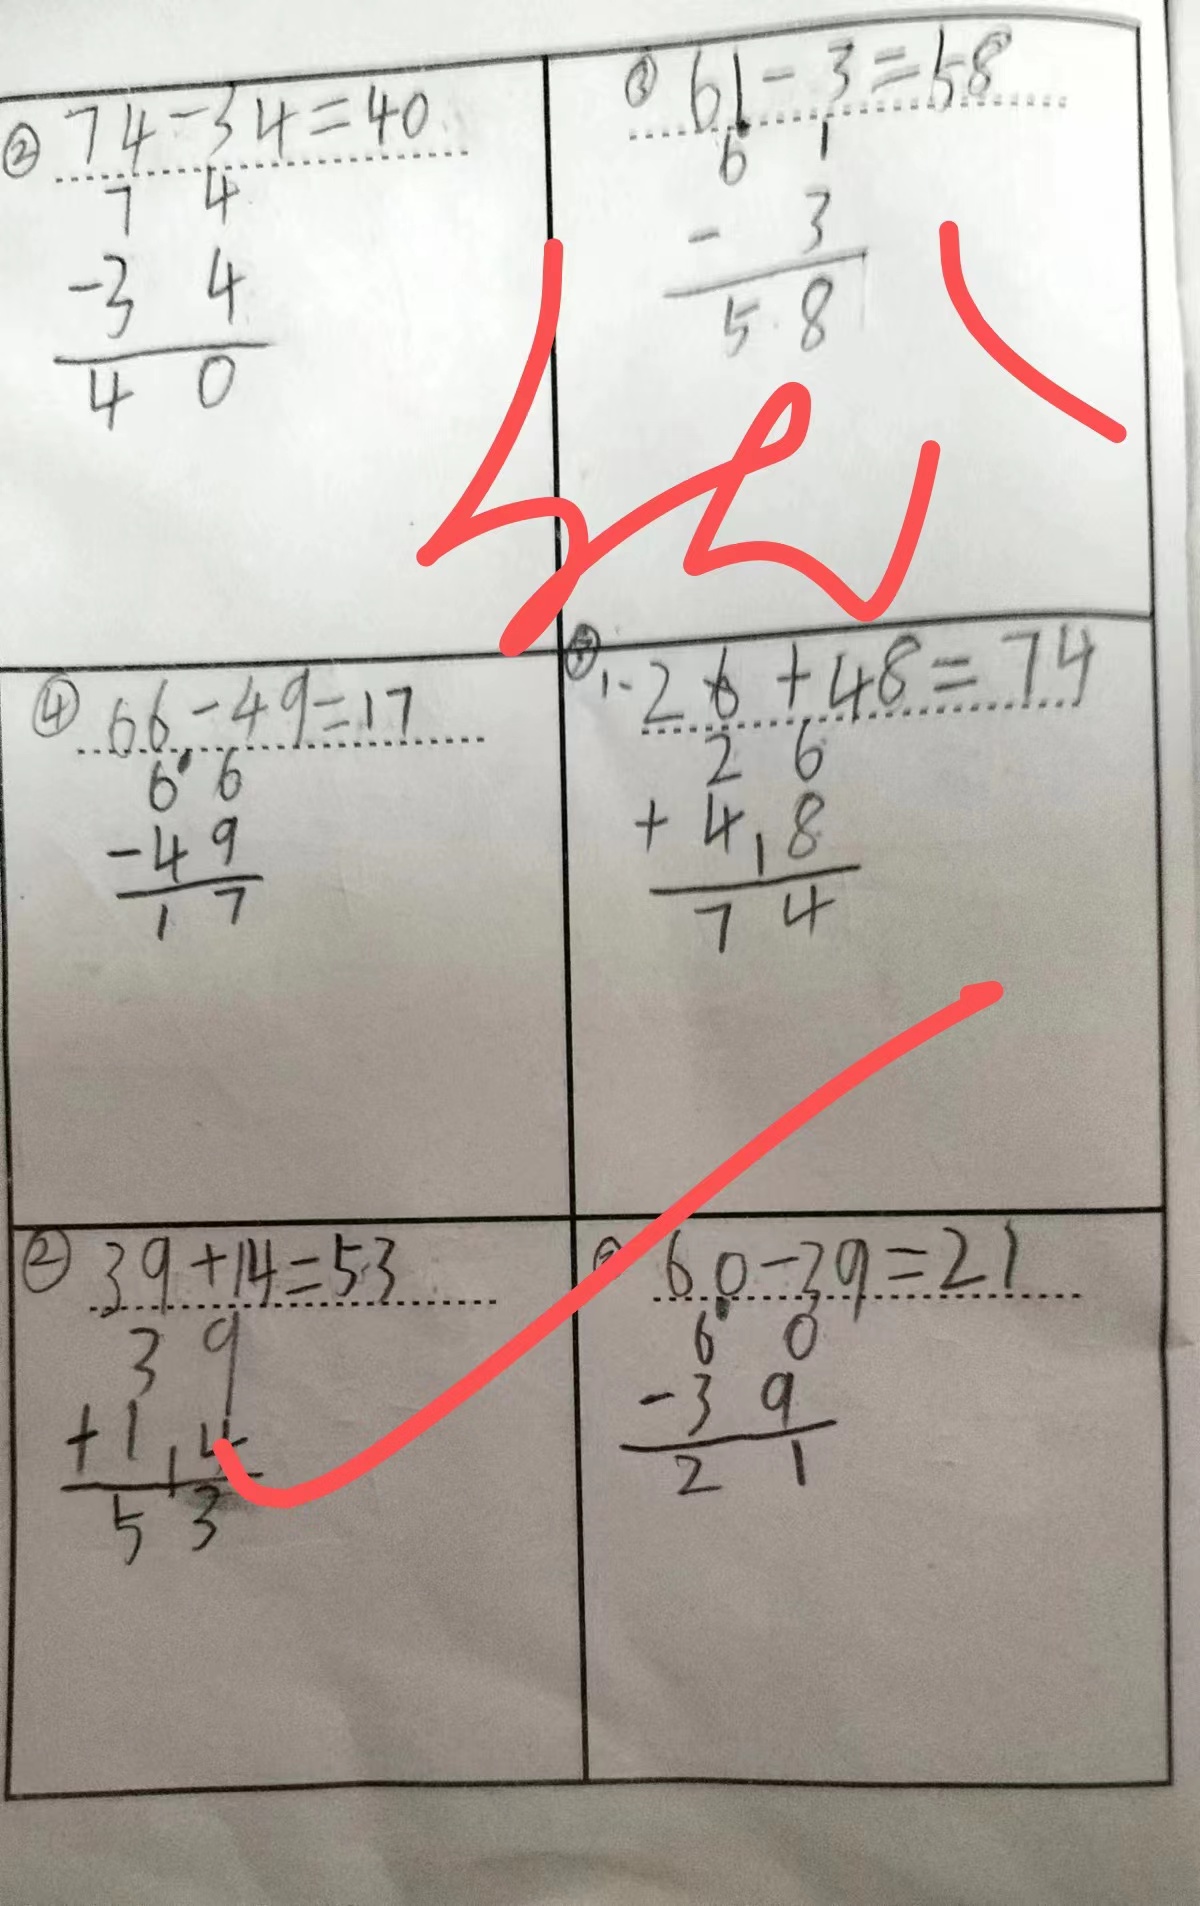 ② 74-34=40
7 4
-3 4
4 0
③ 61-3=58
6 1
- 3
5 8
④ 66-49=17
6 6
-4 9
1 7
1. 26+48=74
2 6
+ 4 1 8
7 4
② 39+14=53
3 9
+1 1 4
5 3
60-39=21
6 0
-3 9
2 1